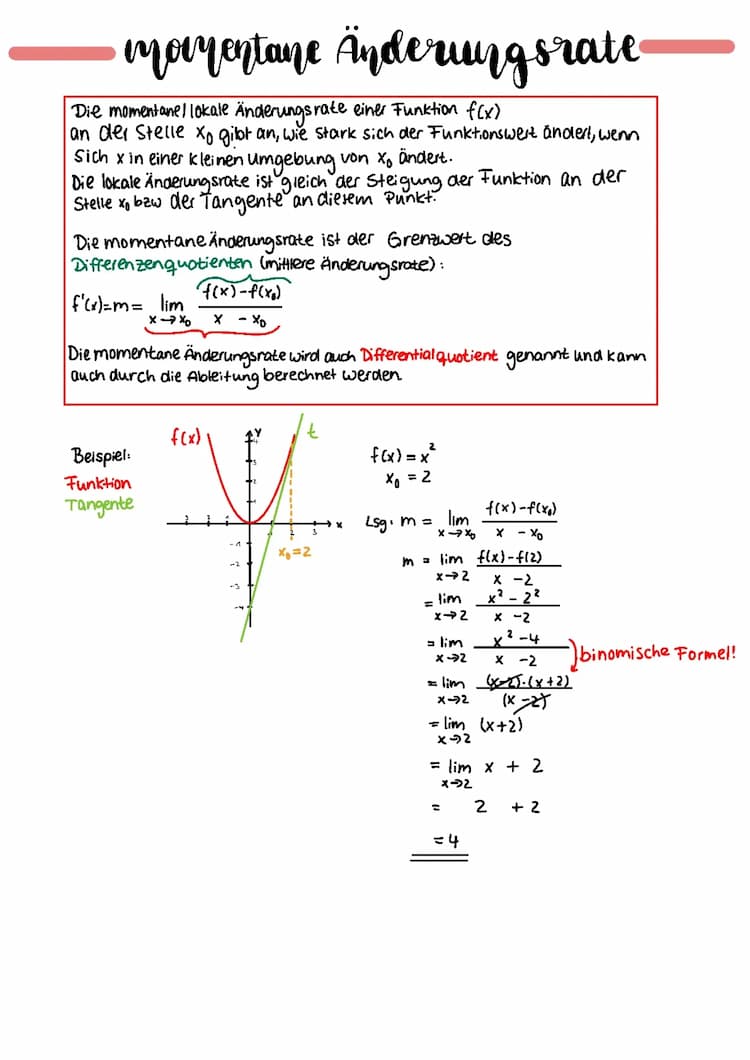 momentane Änderungsrate
Die momentane/lokale Änderungsrate einer Funktion f(x)
an der Stelle x₀ gibt an, wie stark sich der Funktionswert ändert, wenn
sich x in einer kleinen Umgebung von x₀ ändert.
Die lokale Änderungsrate ist gleich der Steigung der Funktion an der
Stelle x₀ bzw der Tangente an diesem Punkt.
Die momentane Änderungsrate ist der Grenzwert des
Differenzenquotienten (mittlere Änderungsrate):
f'(x)=m= lim x→x₀ (f(x)-f(x₀))/(x - x₀)
Die momentane Änderungsrate wird auch Differentialquotient genannt und kann
auch durch die Ableitung berechnet werden.
Beispiel:
Funktion
Tangente
f(x)
y
t
x
x₀=2
f(x) = x²
x₀ = 2
Lsg: m = lim x→x₀ (f(x)-f(x₀))/(x - x₀)
m = lim x→2 (f(x)-f(2))/(x - 2)
= lim x→2 (x² - 2²)/(x - 2)
= lim x→2 (x² - 4)/(x - 2)
binomische Formel!
= lim x→2 ((x-2)·(x+2))/(x-2)
= lim x→2 (x+2)
= lim x→2 x + 2
= 2 + 2
= 4